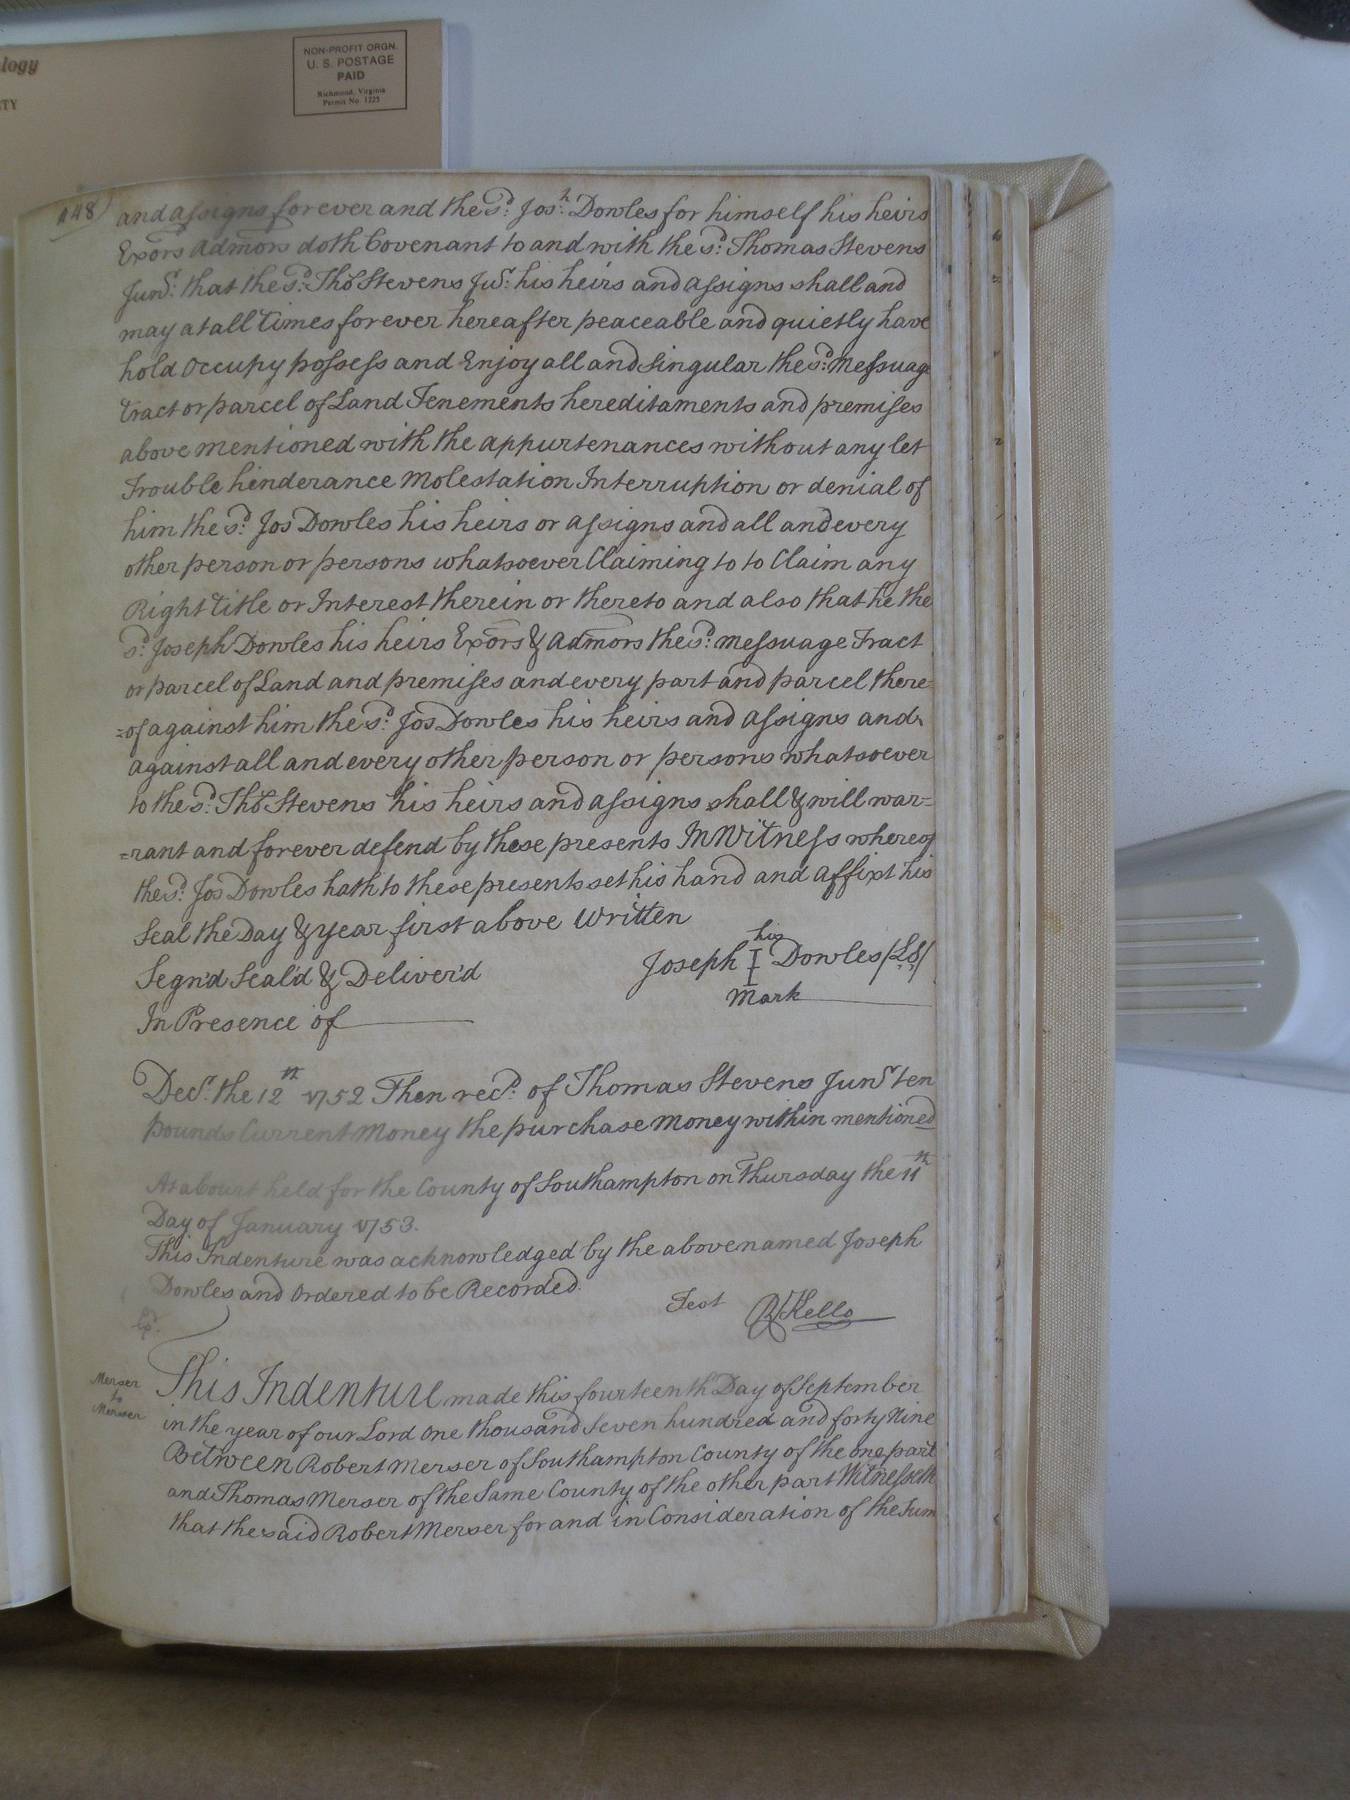 logy
TY
NON-PROFIT ORGN.
U. S. POSTAGE
PAID
Richmond, Virginia
Permit No. 1225
448)
and assigns forever and the sd. Josh. Dowles for himself his heirs
Exors Admors doth Covenant to and with the sd. Thomas Stevens
Junr. that the sd. Tho Stevens Jur. his heirs and assigns shall and
may at all times forever hereafter peaceable and quietly have
hold occupy possess and Enjoy all and singular the sd. Messuage
tract or parcel of Land Tenements hereditaments and premises
above mentioned with the appurtenances without any let
Trouble henderance Molestation Interruption or denial of
him the sd. Jos Dowles his heirs or assigns and all and every
other person or persons whatsoever Claiming to to Claim any
Right title or Interest therein or thereto and also that he the
sd. Joseph Dowles his heirs Exors & Admors the sd. messuage Tract
or parcel of Land and premises and every part and parcel there=
=of against him the sd. Jos Dowles his heirs and assigns and
against all and every other person or persons whatsoever
to the sd. Tho Stevens his heirs and assigns shall & will war=
=rant and forever defend by these presents In Witness whereof
the sd. Jos Dowles hath to these presents set his hand and affixt his
Seal the Day & year first above Written
his
Segn'd Seal'd & Deliver'd Joseph I Dowles (LS)
Mark
In Presence of
Decr. the 12th 1752 Then recd. of Thomas Stevens Junr ten
pounds Current Money the purchase money within mentioned
At a Court held for the County of Southampton on Thursday the 11th
Day of January 1753.
This Indenture was acknowledged by the above named Joseph
Dowles and Ordered to be Recorded.
Test R Kello
Merser
to
Merser
This Indenture made this fourteenth Day of September
in the year of our Lord One thousand Seven hundred and forty Nine
Between Robert Merser of Southampton County of the one part
and Thomas Merser of the Same County of the other part Witnesseth
that the said Robert Merser for and in Consideration of the Sum